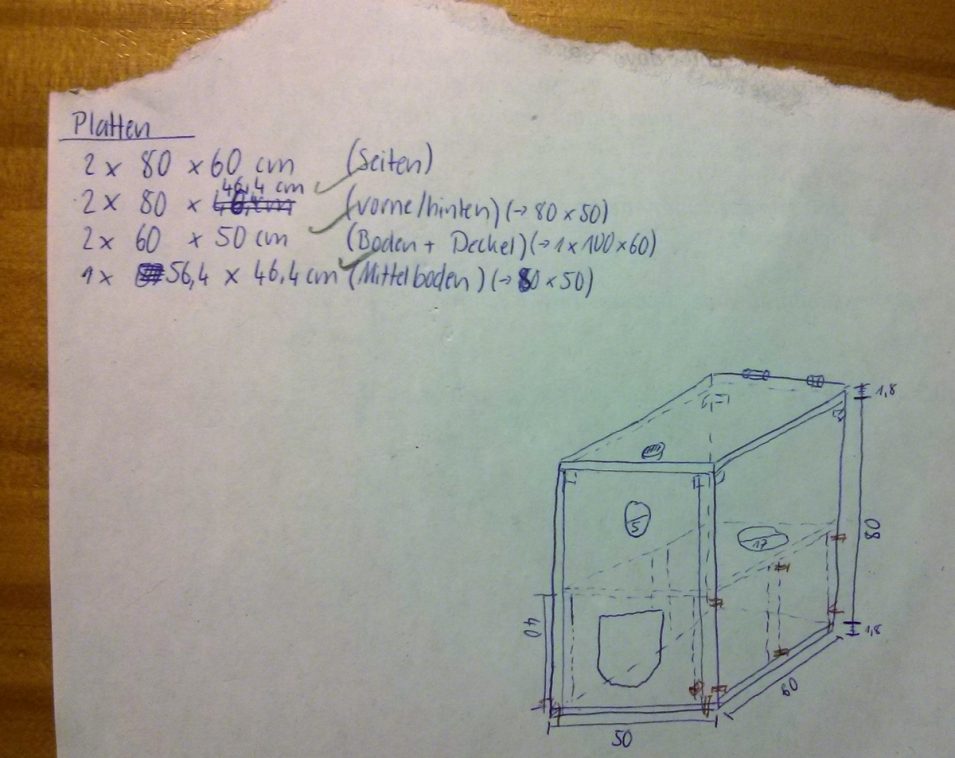 Platten
2 x 80 x 60 cm (Seiten)
46,4 cm
2 x 80 x (vorne/hinten) (→ 80 x 50)
2 x 60 x 50 cm (Boden + Deckel) (→ 1 x 100 x 60)
1 x 56,4 x 46,4 cm (Mittelboden) (→ 80 x 50)
1,8
5
17
80
40
1,8
60
50